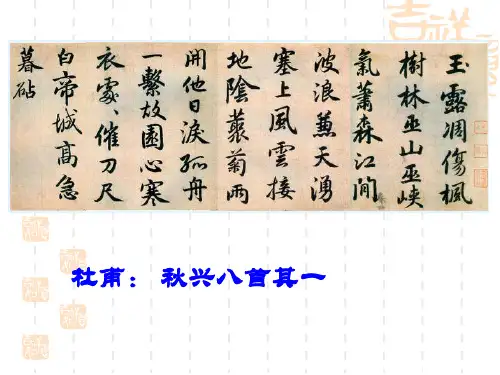 吉祥
玉露凋傷楓
樹林巫山巫峽
氣蕭森江間
波浪兼天湧
塞上風雲接
地陰叢菊兩
開他日淚孤舟
一繫故園心寒
衣處〻催刀尺
白帝城高急
暮砧
杜甫：秋兴八首其一